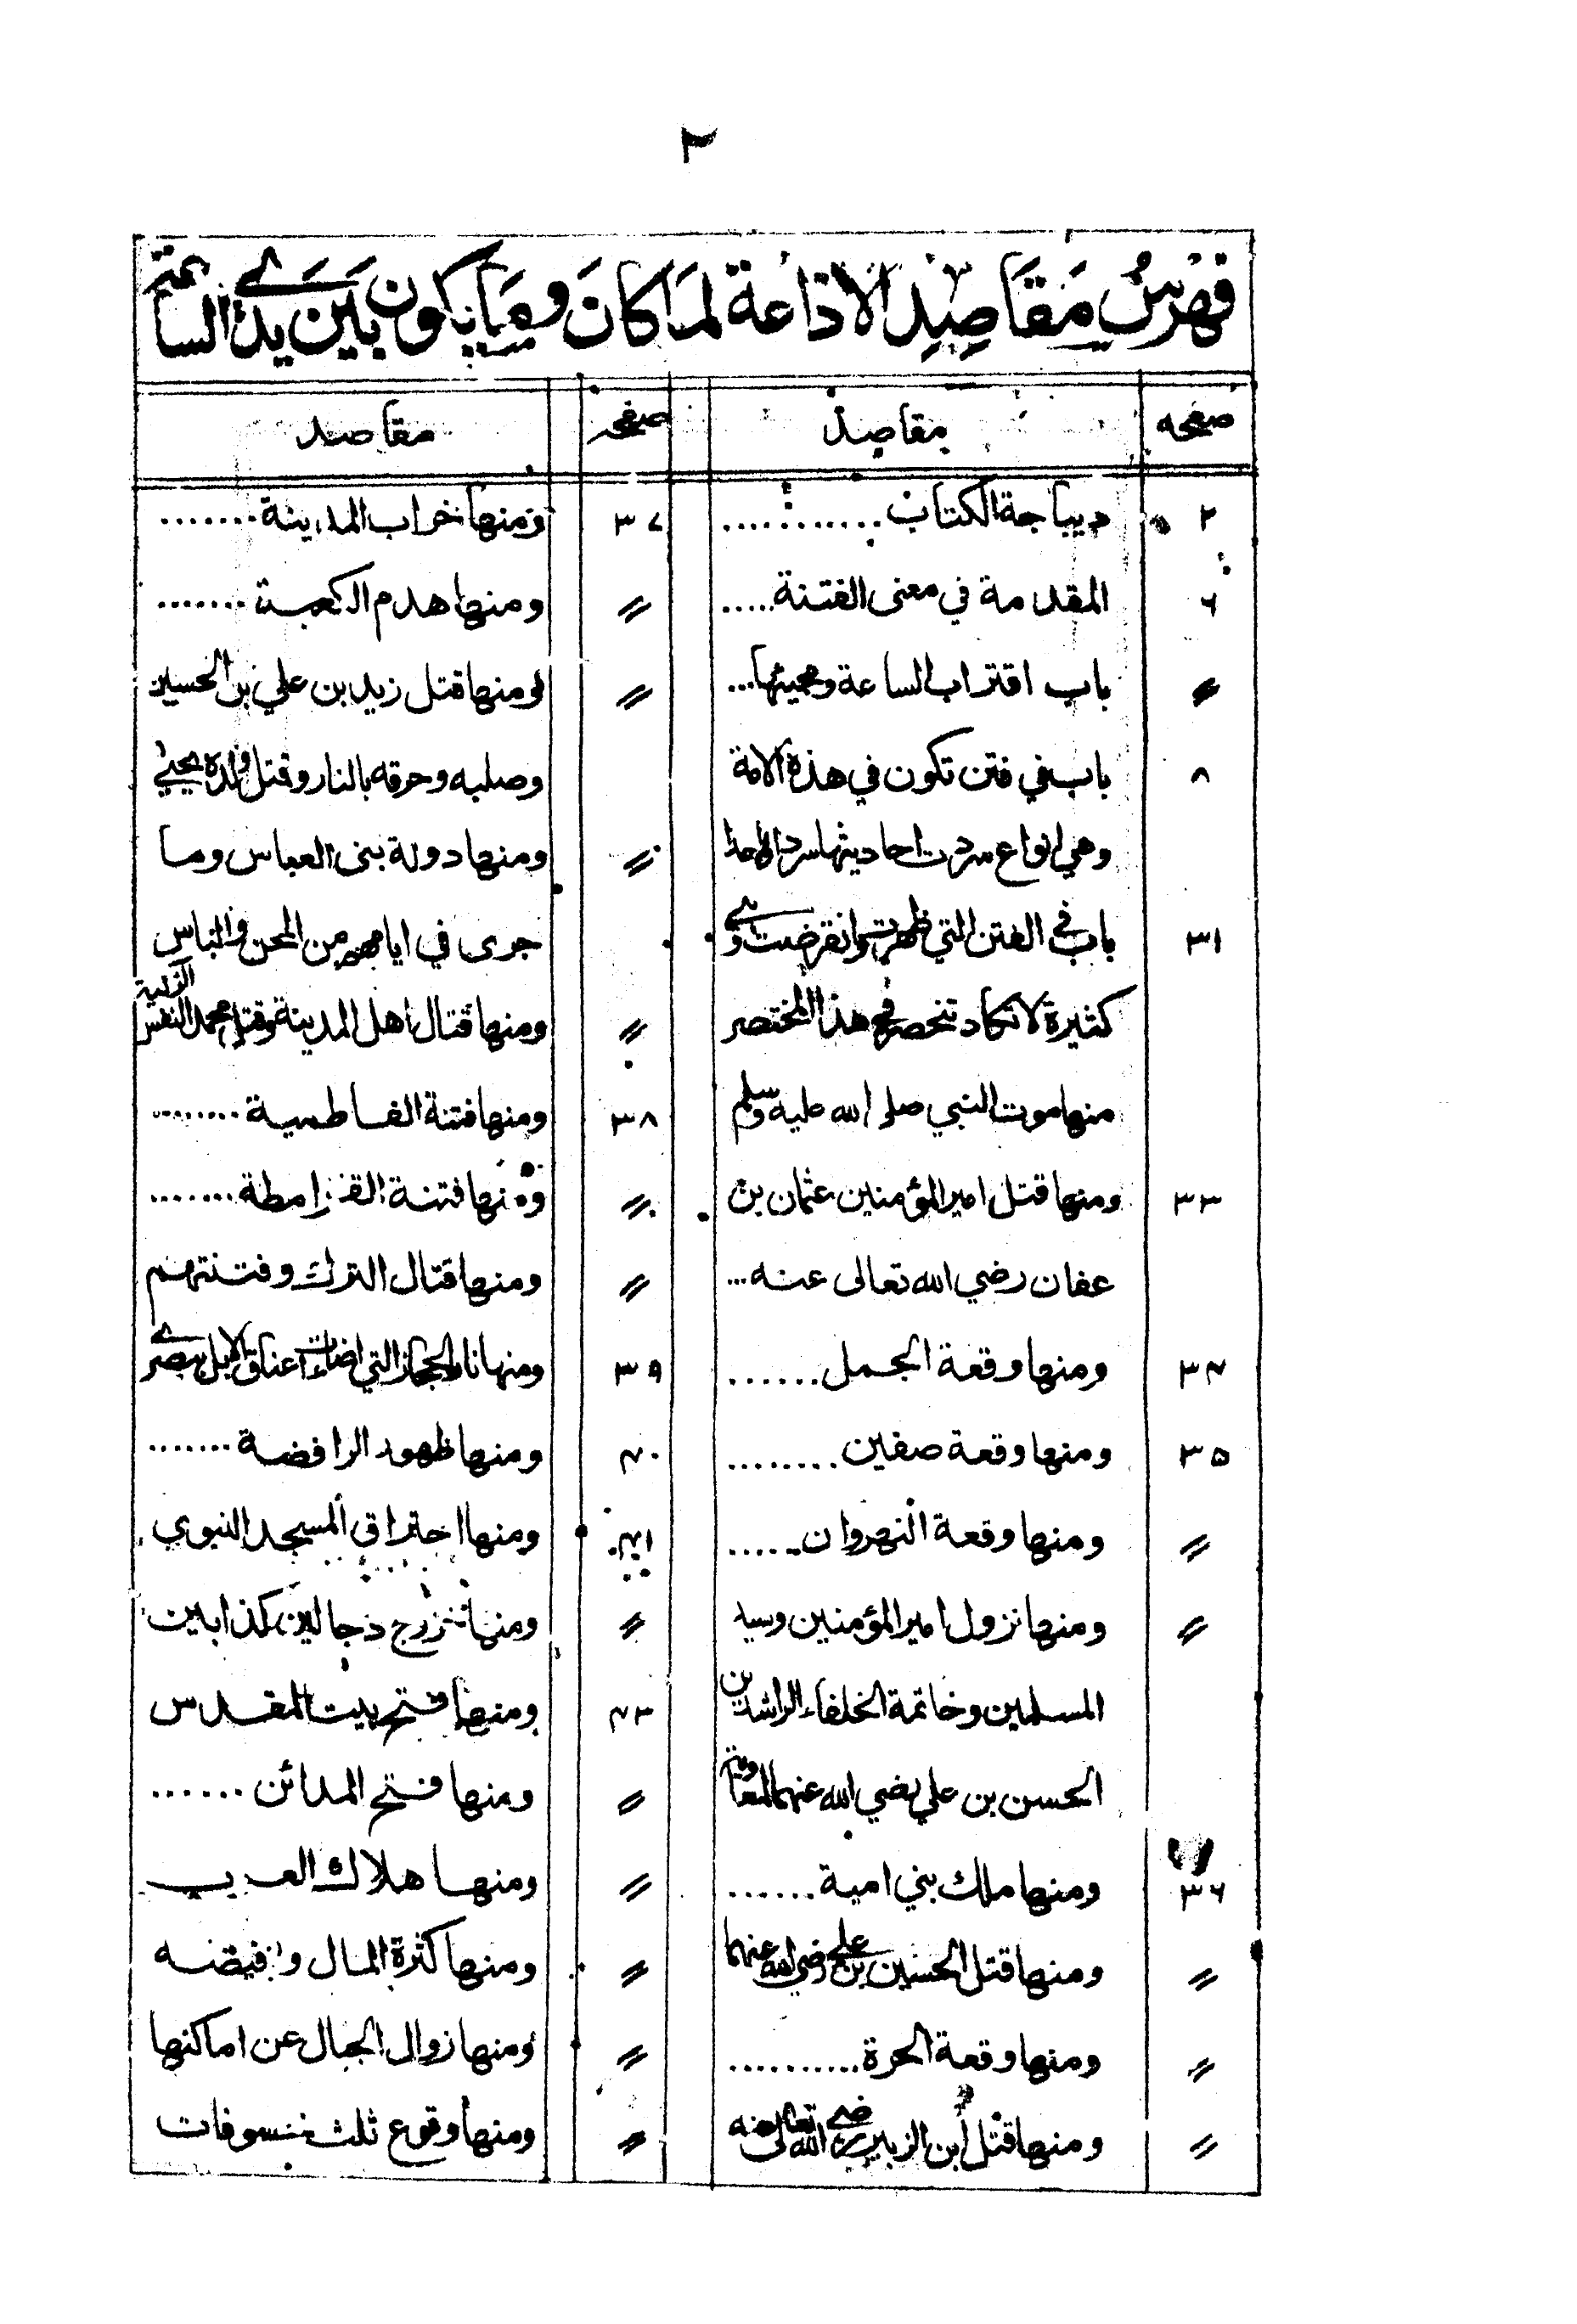 ٢
فهرس مقاصد الاذاعة لما كان وما يكون بين يدي الساعة
صفحه مقاصد صفحه مقاصد
٢ ديباجة الكتاب ...........
٦ المقدمة في معنى الفتنة .....
〃 باب اقتراب الساعة ومجيئها ...
٨ باب في فتن تكون في هذه الامة
وهي انواع سردت احاديثها سردا
٣١ باب في الفتن التي ظهرت وانقرضت وهي
كثيرة لا تكاد تنحصر في هذا المختصر
منها موت النبي صلى الله عليه وسلم
٣٣ ومنها قتل امير المؤمنين عثمان بن
عفان رضي الله تعالى عنه ...
٣٤ ومنها وقعة الجمل ......
٣٥ ومنها وقعة صفين ........
〃 ومنها وقعة النهروان ......
〃 ومنها نزول امير المؤمنين وسيد
المسلمين وخاتمة الخلفاء الراشدين
الحسن بن علي رضي الله عنهما لمعاوية
٣٦ ومنها ملك بني امية ......
〃 ومنها قتل الحسين بن علي رضي الله عنهما
〃 ومنها وقعة الحرة ..........
〃 ومنها قتل ابن الزبير رضي الله تعالى عنه
٣٧ ومنها خراب المدينة .......
〃 ومنها هدم الكعبة .......
〃 ومنها قتل زيد بن علي بن الحسين
وصلبه وحرقه بالنار وقتل ولده يحيى
〃 ومنها دولة بنى العباس وما
جرى في ايامهم من المحن والباس
〃 ومنها قتال اهل المدينة وقتل محمد النفس الزكية
٣٨ ومنها فتنة الفاطمية ........
〃 ومنها فتنة القرامطة .......
〃 ومنها قتال الترك وفتنتهم
٣٩ ومنها نار الحجاز التي اضاءت اعناق الابل ببصرى
٤٠ ومنها ظهور الرافضة .......
٤١ ومنها احتراق المسجد النبوي
〃 ومنها خروج دجالين كذابين
٤٣ ومنها فتح بيت المقدس
〃 ومنها فتح المدائن ......
〃 ومنها هلاك العرب
〃 ومنها كثرة المال وفيضه
〃 ومنها زوال الجبال عن اماكنها
〃 ومنها وقوع ثلث خسوفات